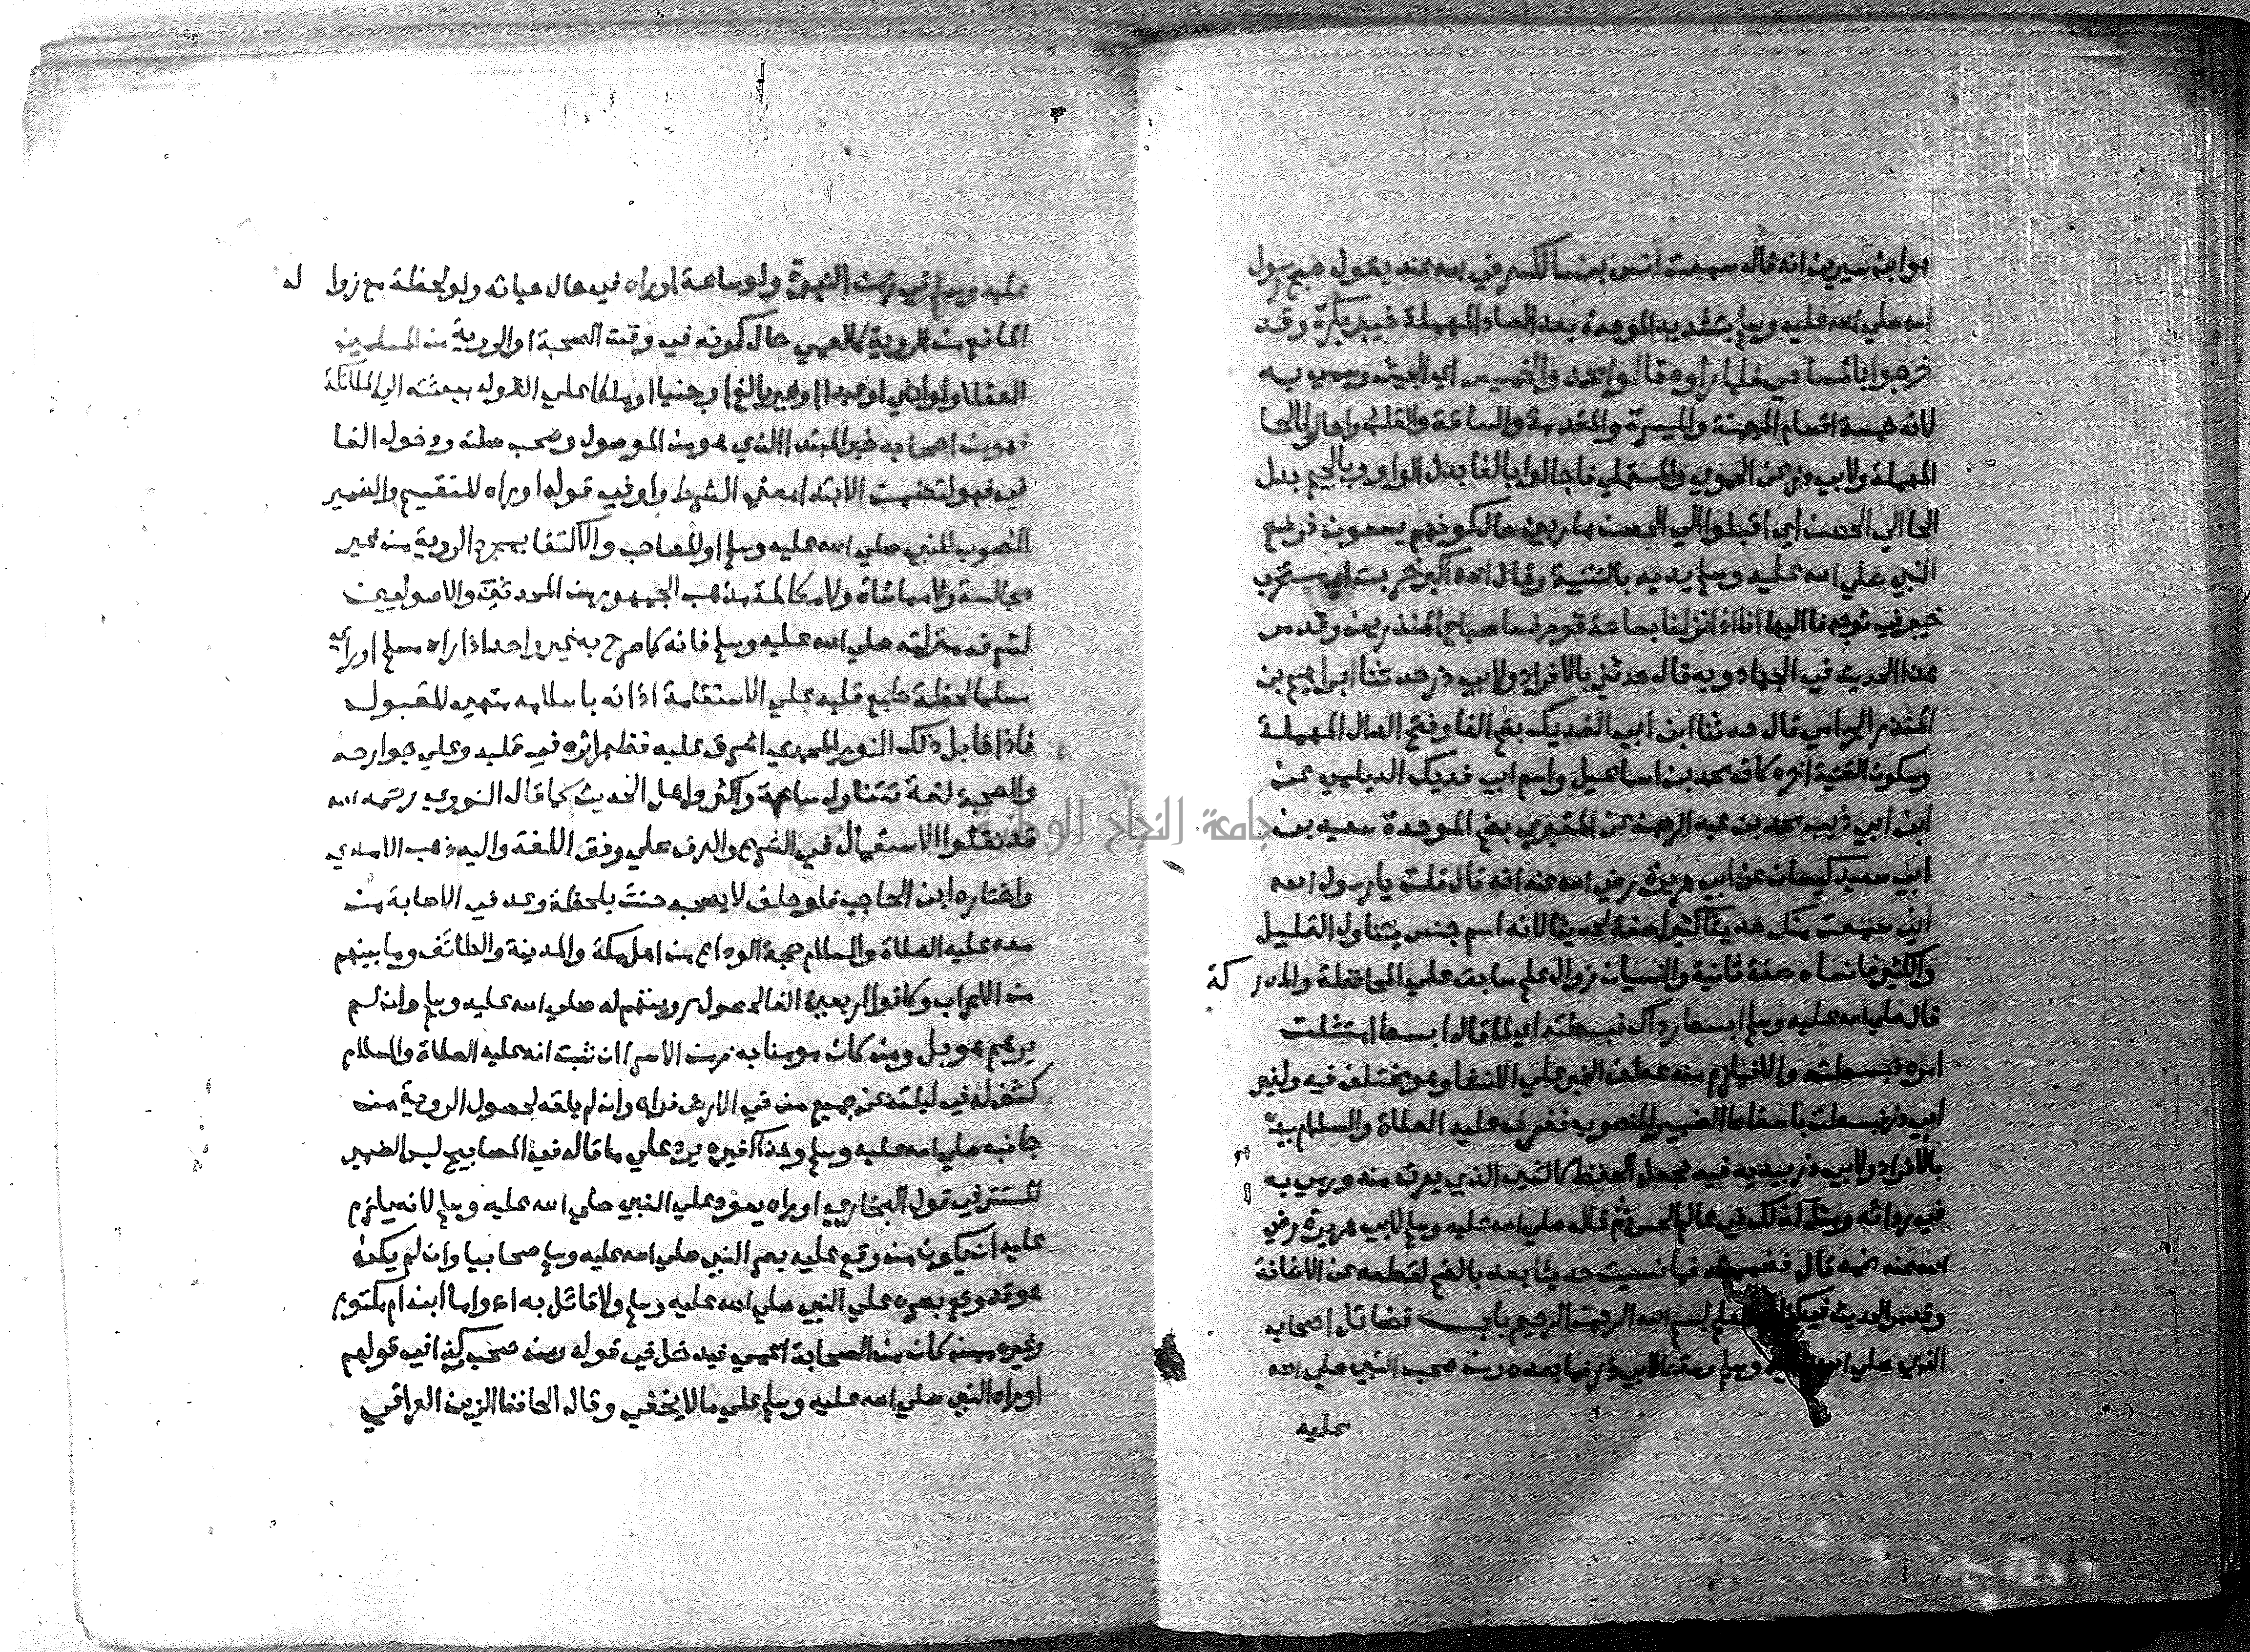 هو ابن سيرين انه قال سمعت انس بن مالك رضي الله عنه يقول صبح رسول
الله صلي الله عليه وسلم بتشديد الموحدة بعد الصاد المهملة خيبر بكرة وقد
خرجوا بالمساحي فلما راوه قالوا محمد والخميس اي الجيش وسمي به
لانه خمسة اقسام الميمنة والميسرة والمقدمة والساقة والقلب واحالوا بالحا
المهملة ولابي ذر عن الحموي والمستملي فاجالوا بالفا بدل الواو وبالجيم بدل
الحا الي الحصن اي اقبلوا الي الحصن هاربين حال كونهم يسعون فرفع
النبي صلي الله عليه وسلم يديه بالتثنية وقال الله اكبر خربت اي ستخرب
خيبر في توجهنا اليها انا اذا نزلنا بساحة قوم فسا صباح المنذرين وقد مر
هذا الحديث في الجهاد وبه قال حدثني بالافراد ولابي ذر حدثنا ابراهيم بن
المنذر الحزامي قال حدثنا ابن ابي الفديك بضم الفا وفتح الدال المهملة
وسكون التحتية اخره كاف محمد بن اسماعيل واسم ابي فديك الديلمي عن
ابن ابي ذيب محمد بن عبد الرحمن عن المقبري بضم الموحدة سعيد بن
ابي سعيد كيسان عن ابي هريرة رضي الله عنه انه قال قلت يا رسول الله
اني سمعت منك حديثا كثيرا صفة لحديثا لانه اسم جنس يتناول القليل
والكثير فانساه صفة ثانية والنسيان زوال علم سابق علي الحافظة والمدر كة
قال صلي الله عليه وسلم ابسط رداك فبسطته اي لما قال ابسط امتثلت
امره فبسطته والا فيلزم منه عطف الخبر علي الانشا وهو مختلف فيه ولغير
ابي ذر فبسطت باسقاط الضمير المنصوب فغرف عليه الصلاة والسلام بيده
بالافراد ولابي ذر بيديه فيه فجعل الحفظ كالشي الذي يغرف منه ورمي به
في ردائه ومثل لذلك في عالم الحس ثم قال صلي الله عليه وسلم لابي هريرة رضي
الله عنه ضمه قال فضممته فما نسيت حديثا بعد بالضم لقطعه عن الاضافة
وقد مر الحديث في العلم بسم الله الرحمن الرحيم باب فضائل اصحاب
النبي صلي الله وسلم لابي ذر فما بعده ومن صحب النبي صلي الله
عليه
عليه وسلم في زمن النبوة ولو ساعة او راه في حال حياته ولو لحظة مع زوا له
المانع من الروية كالعمي حال كونه في وقت الصحبة او الروية من المسلمين
العقلا ولو انثي او عبدا او غير بالغ او جنيا او ملكا علي القول ببعثته الي الملائكة
فهو من اصحابه خبر المبتدا الذي هو من الموصول وصحب صلته ودخول الفا
في فهو لتضمن الابتدا معني الشرط واو في قوله او راه للتقسيم والضمير
المنصوب للنبي صلي الله عليه وسلم او للصاحب والاكتفا بمجرد الروية من غير
مجالسة ولا مماشاة ولا مكالمة مذهب الجمهور من المحدثين والاصوليين
لشرف منزلته صلي الله عليه وسلم فانه كما صرح به غير واحد اذا راه مسلم او راي
مسلما لحظة طبع قلبه علي الاستقامة اذ انه باسلامه متهيئ للقبول
فاذا قابل ذلك النور المحمدي اشرق عليه فظهر اثره في قلبه وعلي جوارحه
والصحبة لغة تتناول ساعة واكثر واهل الحديث كما قال النووي رحمه الله
قد نقلوا الاستعمال في الشرع والعرف علي وفق اللغة واليه ذهب الامدي
واختاره ابن الحاجب فلو حلف لا يصحبه حنث بلحظة وعد في الاصابة من
معه عليه الصلاة والسلام حجة الوداع من اهل مكة والمدينة والطائف وما بينهم
من الاعراب وكانوا اربعين الفا لحصول رويتهم له صلي الله عليه وسلم وان لم
يرهم هو بل ومن كان مومنا به زمن الاسرا ان ثبت انه عليه الصلاة والسلام
كشف له في ليلته عن جميع من في الارض فراه وان لم يلقه لحصول الروية من
جانبه صلي الله عليه وسلم وهذا كغيره يرد علي ما قاله في المصابيح ليس الضمير
المستتر في قول البخاري او راه يعود علي النبي صلي الله عليه وسلم لانه يلزم
عليه ان يكون من وقع عليه بصر النبي صلي الله عليه وسلم صحابيا وان لم يكن
هو قد وقع بصره علي النبي صلي الله عليه وسلم ولا قائل به اه واما ابن ام مكتوم
وغيره ممن كان من الصحابة اعمي فيدخل في قوله ومن صحب كذا في قولهم
او راه النبي صلي الله عليه وسلم علي ما لا يخفي وقال الحافظ الزين العراقي
جامعة النجاح الوطنية